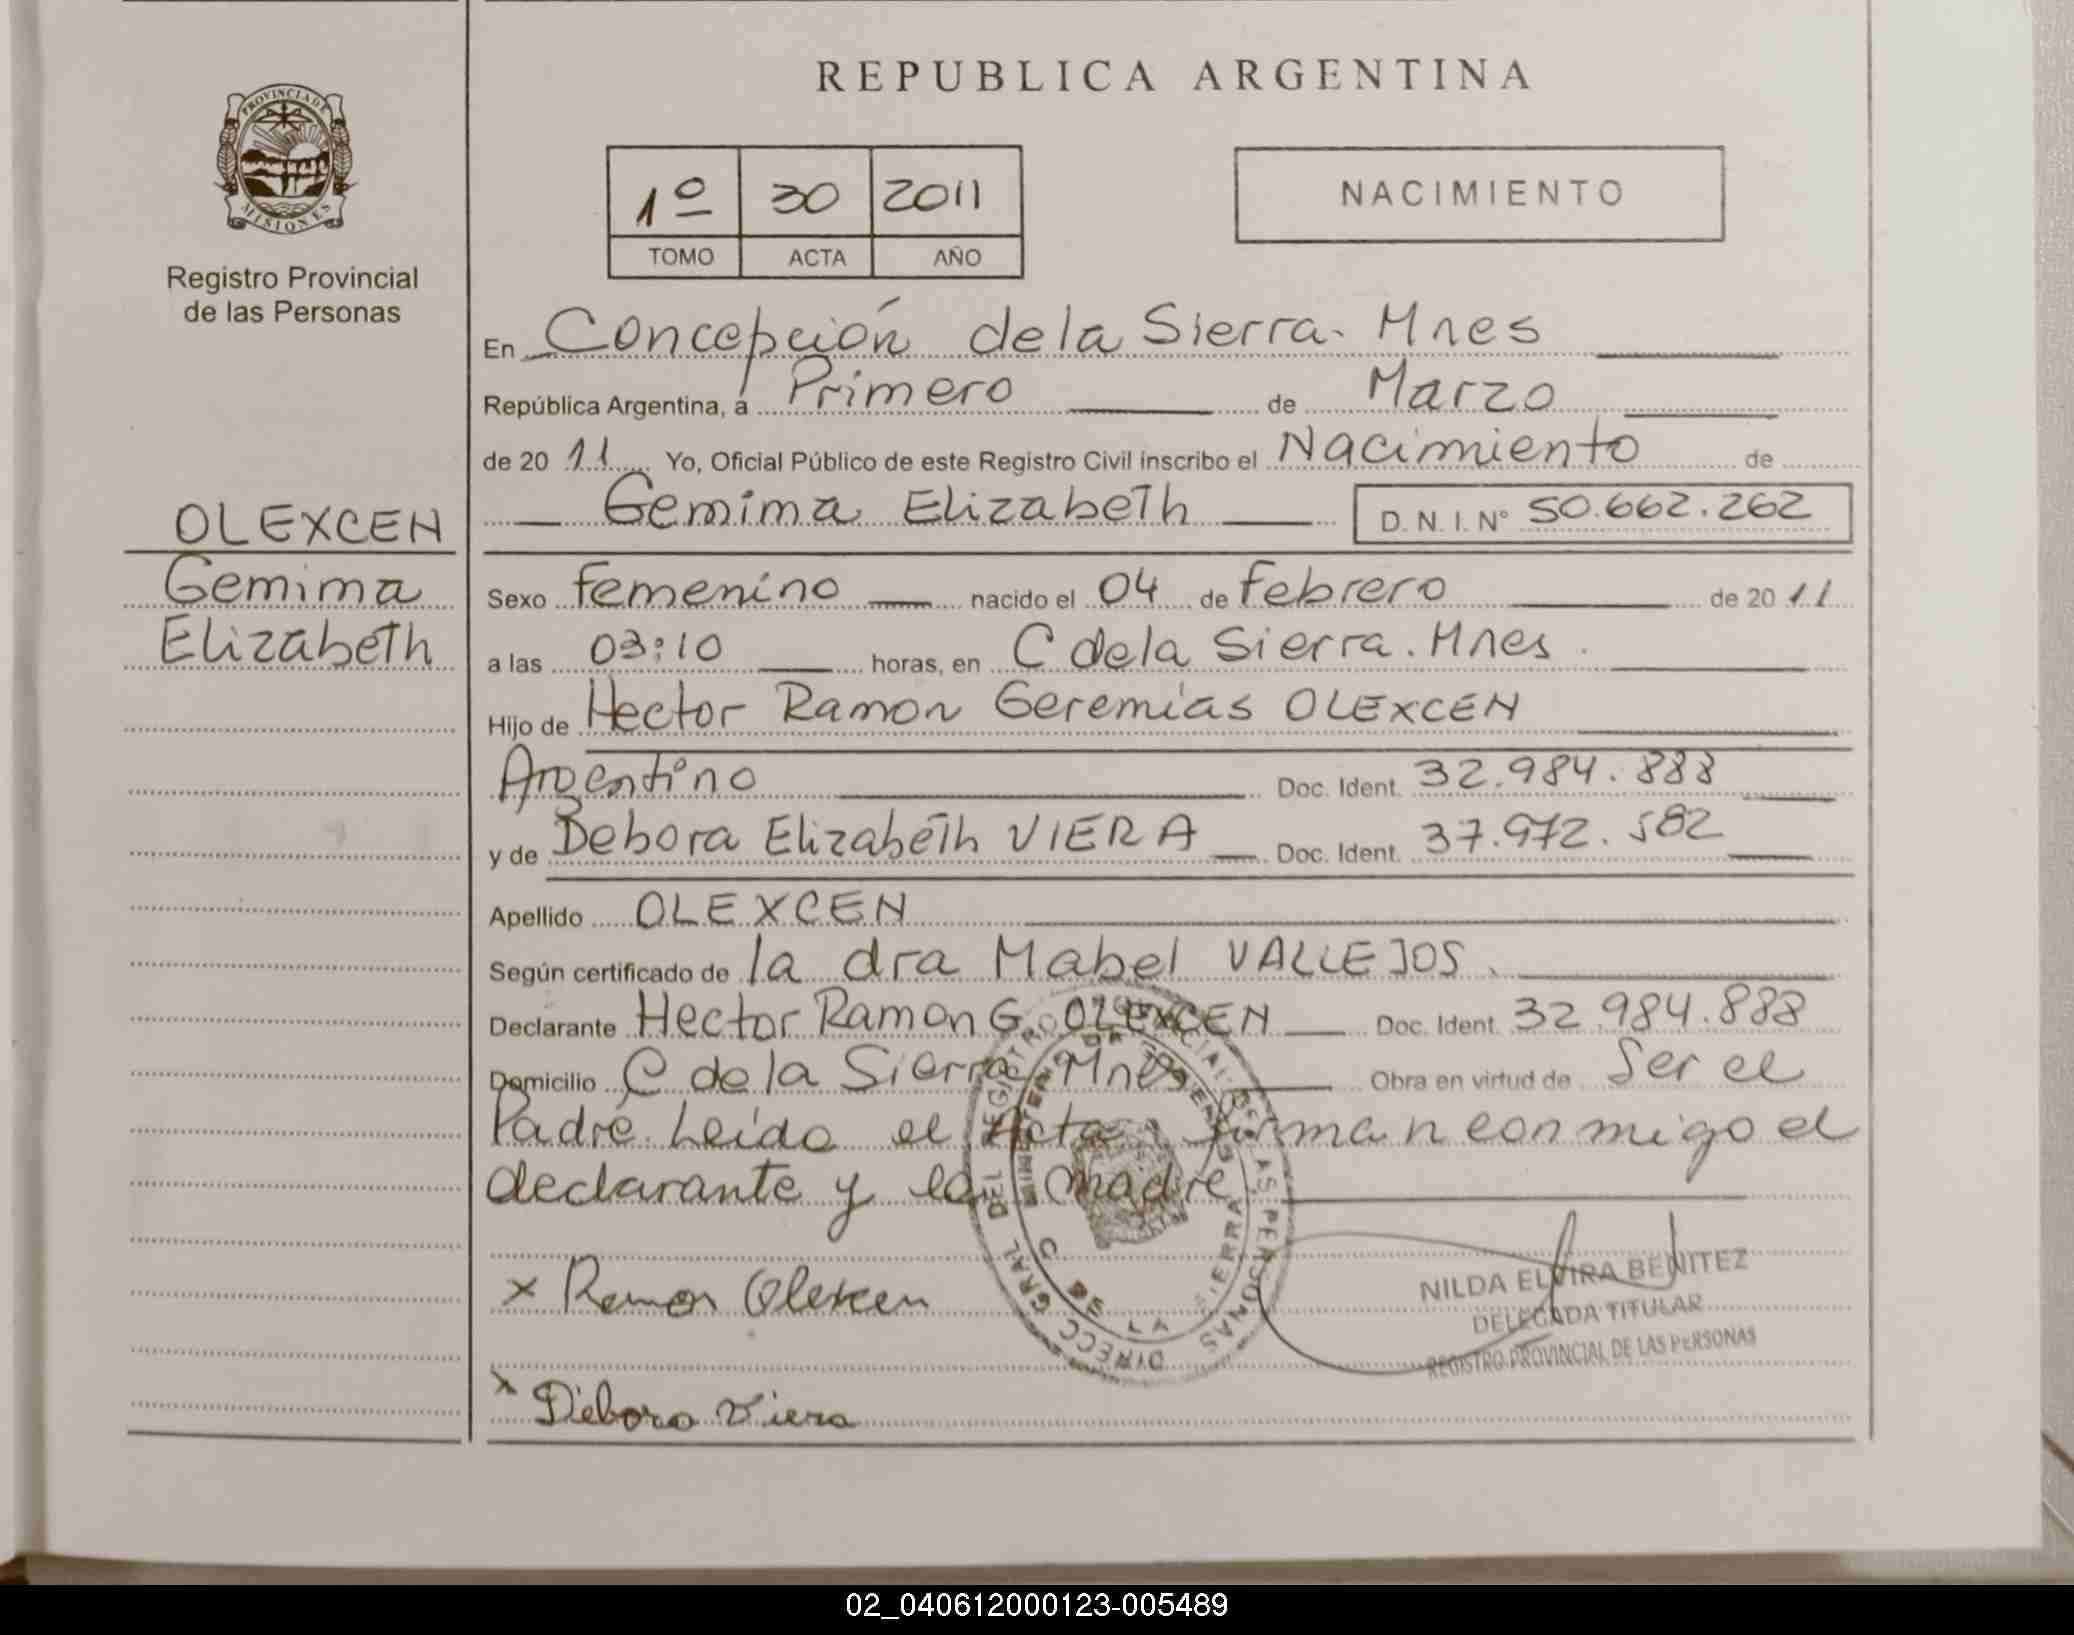 REPUBLICA ARGENTINA
PROVINCIA DE
MISIONES
Registro Provincial
de las Personas
1º 30 2011
TOMO ACTA AÑO
NACIMIENTO
En Concepción de la Sierra. Mnes
República Argentina, a Primero de Marzo
de 20 11 Yo, Oficial Público de este Registro Civil inscribo el Nacimiento de
Gemima Elizabeth D. N. I. Nº 50.662.262
OLEXCEN
Gemima
Elizabeth
Sexo Femenino nacido el 04 de Febrero de 20 11
a las 03:10 horas, en C de la Sierra. Mnes.
Hijo de Hector Ramon Geremías OLEXCEN
Argentino Doc. Ident. 32.984.888
y de Debora Elizabeth VIERA Doc. Ident. 37.972.582
Apellido OLEXCEN
Según certificado de la dra Mabel VALLEJOS.
Declarante Hector Ramon G. OLEXCEN Doc. Ident. 32.984.888
Domicilio C de la Sierra Mnes Obra en virtud de Ser el
Padre. Leído el Acta, firman conmigo el
declarante y la madre
x Ramon Olexcen
x Debora Viera
NILDA ELVIRA BENITEZ
DELEGADA TITULAR
REGISTRO PROVINCIAL DE LAS PERSONAS
DIRECC GRAL DEL REGISTRO PROVINCIAL DE LAS PERSONAS
C DE LA SIERRA
02_040612000123-005489